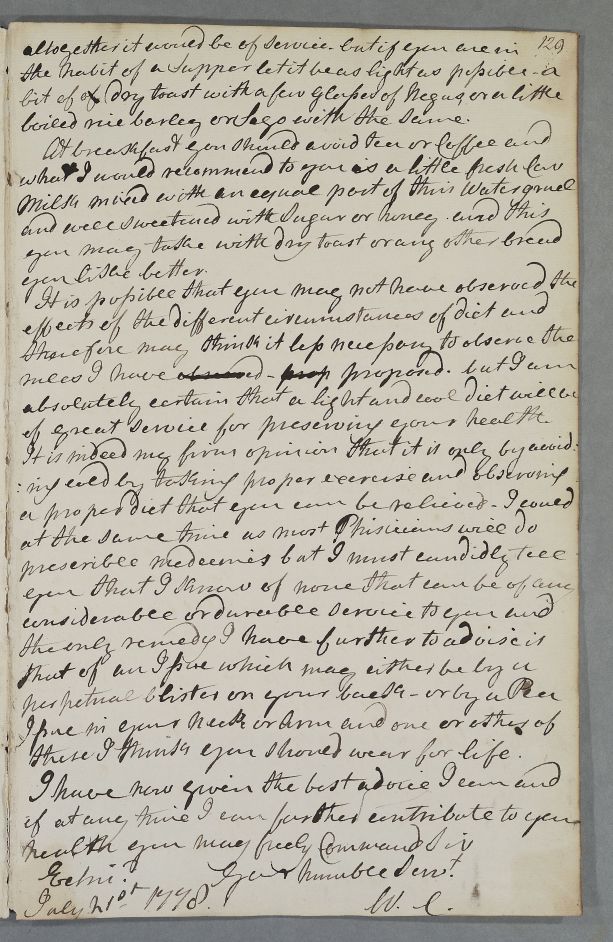 129
altogether it would be of service - but if you are in
the habit of a Supper let it be as light as possible - a
bit of dry toast with a few Glasses of Negus or a little
boiled rice barley or Sago with the same.
At breakfast you should avoid tea or Coffee and
what I would recommend to you is a little fresh Cow
Milk mixed with an equal part of thin Water gruel
and well sweetened with Sugar or honey. and this
you may take with dry toast or any other bread
you like better.
It is possible that you may not have observed the
effects of the different circumstances of diet and
therefore may think it less necessary to observe the
rules I have proposed. but I am
absolutely certain that a light and cool diet will be
of great service for preserving your health.
It is indeed my firm opinion that it is only by avoid:
:ing cold by taking proper exercise and observing
a proper diet that you can be relieved - I could
at the same time as most Phisicians will do
prescribe medecines but I must candidly tell
you that I know of none that can be of any
considerable or durable service to you and
the only remedy I have further to advise is
that of an Issue which may either be by a
perpetual blister on your back - or by a Pea
Issue in your Neck or Arm and one or other of
these I think you should wear for life.
I have now given the best advice I can and
if at any time I can further contribute to your
health you may freely Command Sir
Your humble Servt.
Edinr.
July 21st 1778.
W. C.